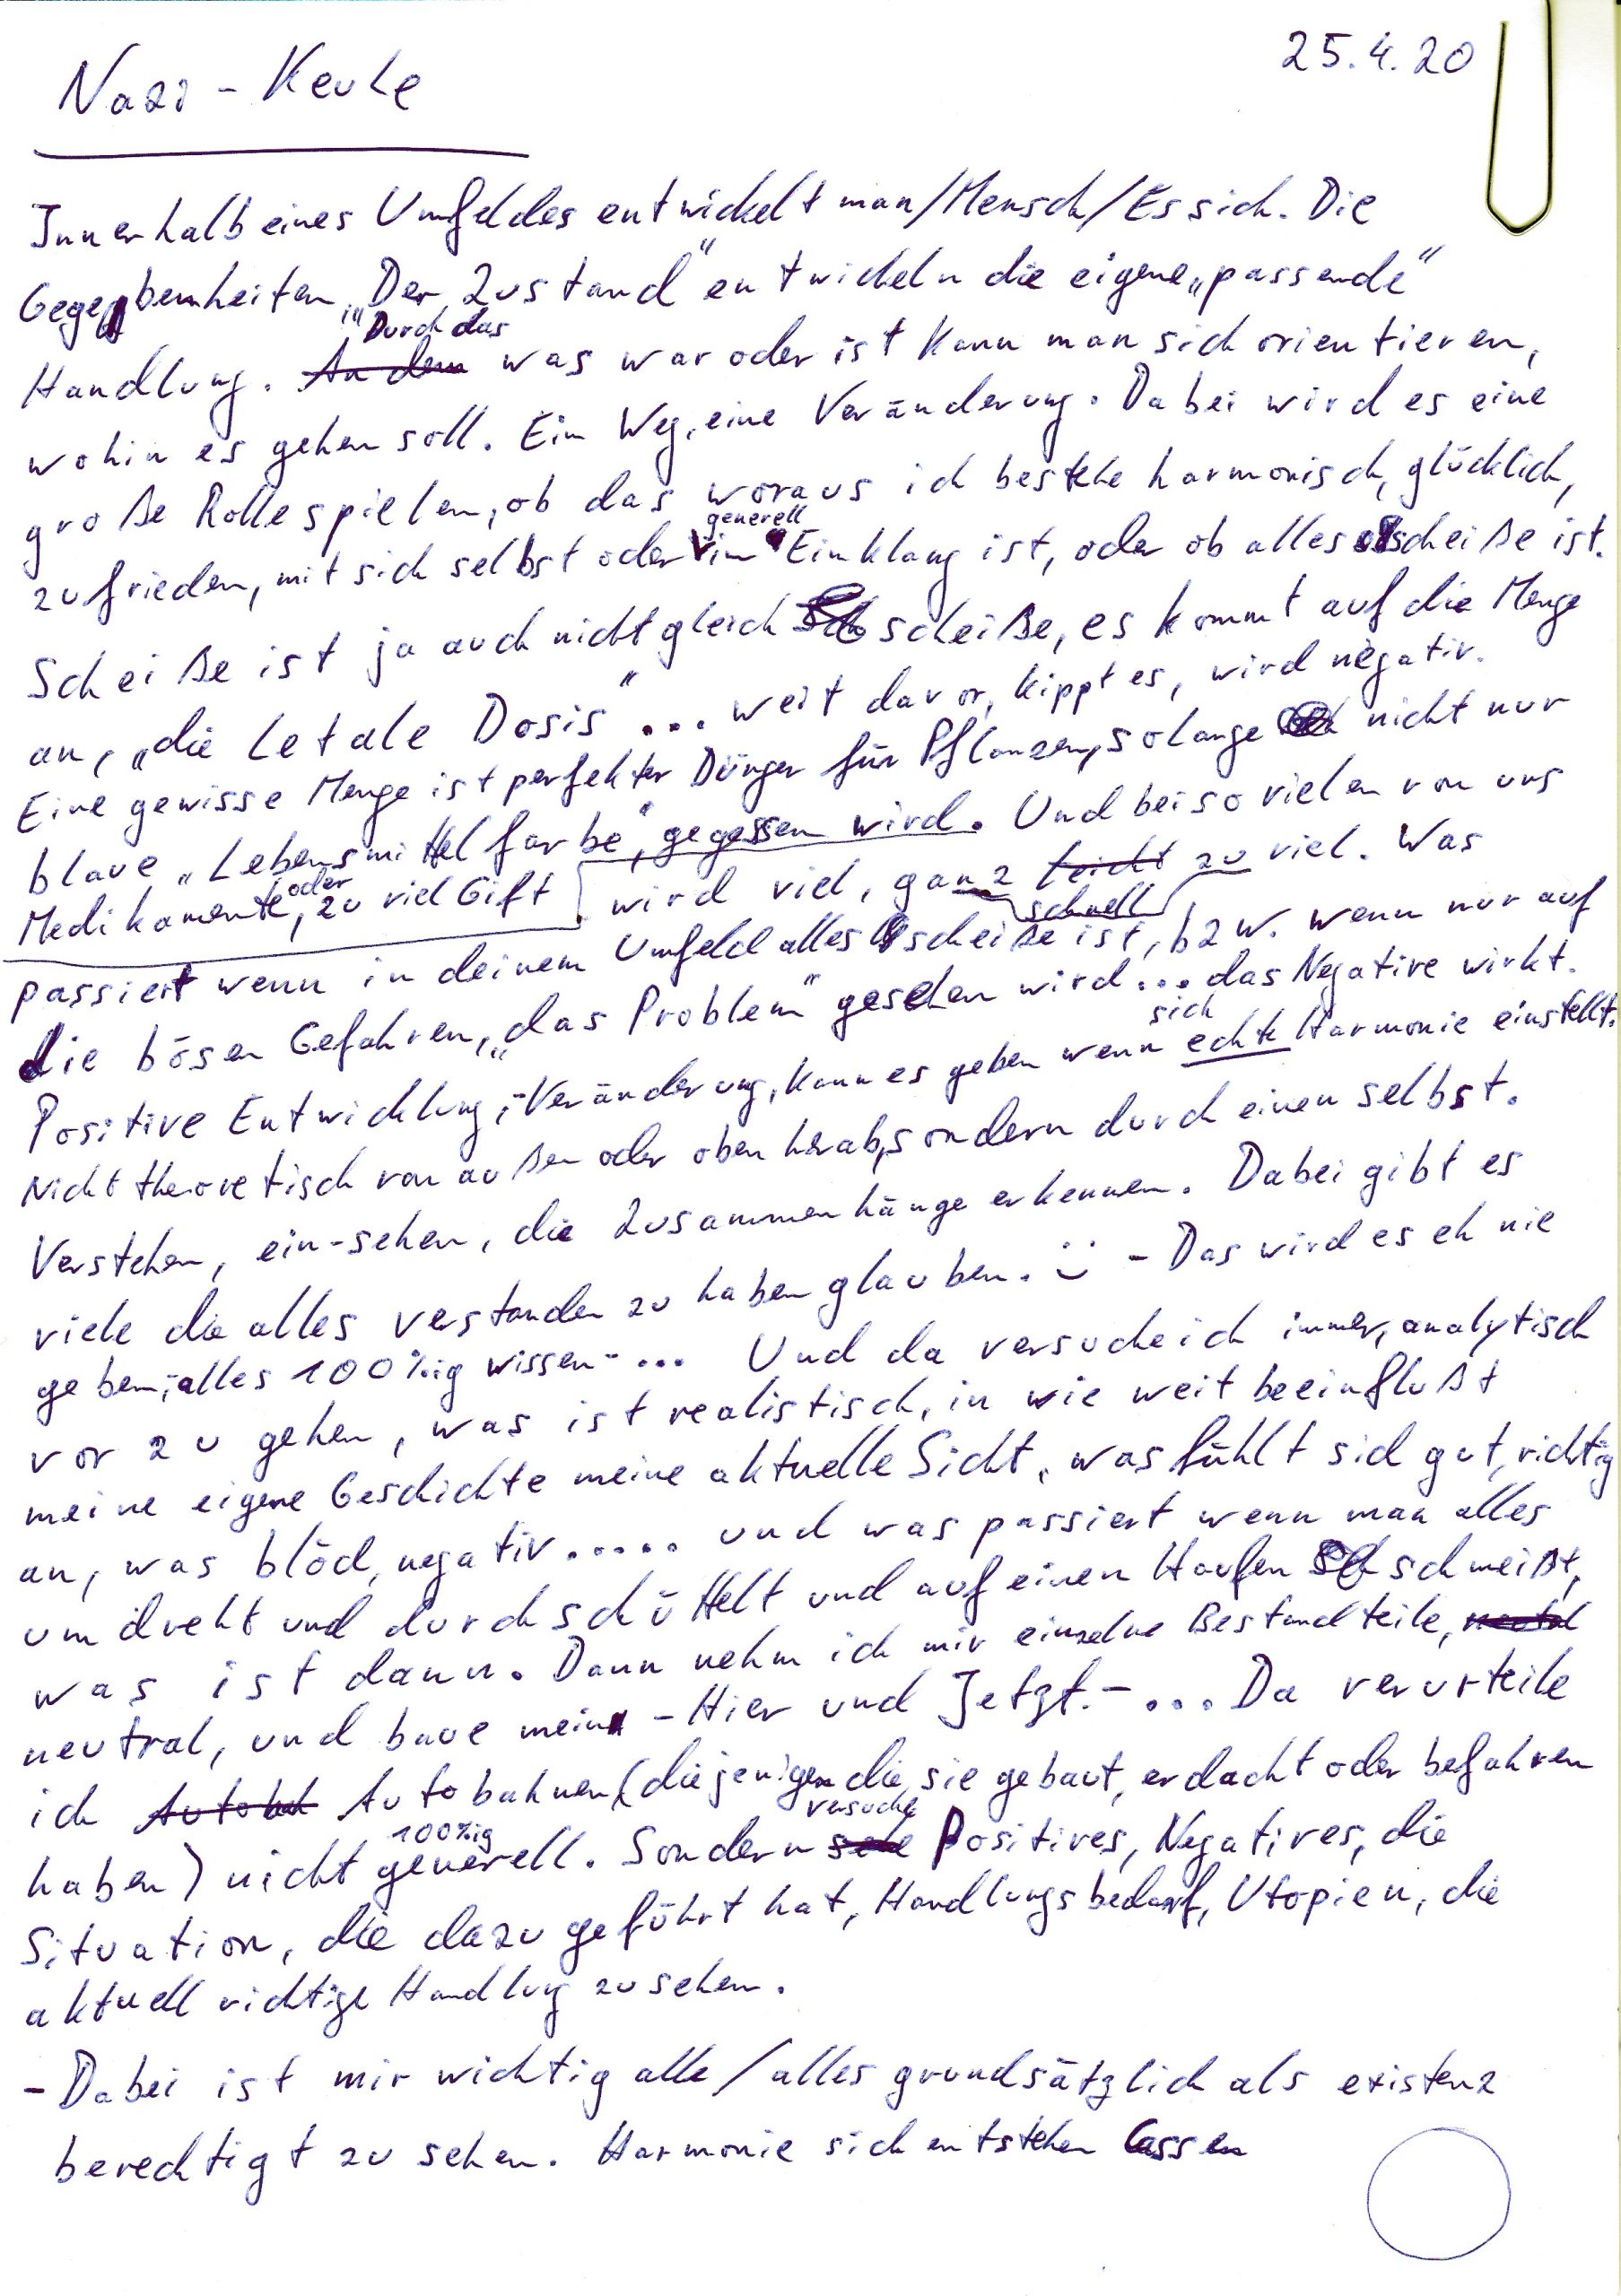 25.4.20
Nazi - Keule
Innerhalb eines Umfeldes entwickelt man/Mensch/Es sich. Die
Gegebenheiten, "Der Zustand" entwickeln die eigene „passende"
Durch das
Handlung. An dem was war oder ist kann man sich orientieren,
wohin es gehen soll. Ein Weg, eine Veränderung. Dabei wird es eine
große Rolle spielen, ob das woraus ich bestehe harmonisch, glücklich,
generell
zufrieden, mit sich selbst oder im Einklang ist, oder ob alles scheiße ist.
Scheiße ist ja auch nicht gleich scheiße, es kommt auf die Menge
an, „die letale Dosis" ... weit davor, kippt es, wird negativ.
Eine gewisse Menge ist perfekter Dünger für Pflanzen, solange nicht nur
blaue „Lebensmittelfarbe", gegessen wird. Und bei so vielen von uns
oder
Medikamente, zu viel Gift wird viel, ganz leicht zu viel. Was
schnell
passiert wenn in deinem Umfeld alles scheiße ist, bzw. wenn nur auf
die bösen Gefahren, „das Problem" gesehen wird... das Negative wirkt.
sich
Positive Entwicklung, -Veränderung, kann es geben wenn echte Harmonie einstellt.
Nicht theoretisch von außen oder oben herab, sondern durch einen selbst.
Verstehen, ein-sehen, die Zusammenhänge erkennen. Dabei gibt es
viele die alles verstanden zu haben glauben. :) - Das wird es eh nie
geben, -alles 100%ig wissen- ... Und da versuche ich immer, analytisch
vor zu gehen, was ist realistisch, in wie weit beeinflußt
meine eigene Geschichte meine aktuelle Sicht, was fühlt sich gut, richtig
an, was blöd, negativ..... und was passiert wenn man alles
umdreht und durchschüttelt und auf einen Haufen schmeißt,
was ist dann. Dann nehm ich mir einzelne Bestandteile, neutral
neutral, und baue mein -Hier und Jetzt.- ... Da verurteile
ich Autobah Autobahnen (diejenigen die sie gebaut, erdacht oder befahren
100%ig versuche
haben) nicht generell. Sondern sehe Positives, Negatives, die
Situation, die dazu geführt hat, Handlungsbedarf, Utopien, die
aktuell richtige Handlung zu sehen.
- Dabei ist mir wichtig alle/alles grundsätzlich als existenz
berechtigt zu sehen. Harmonie sich entstehen lassen